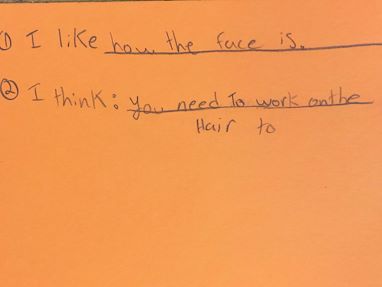 ① I like how the face is.
② I think: you need To work on the
Hair to